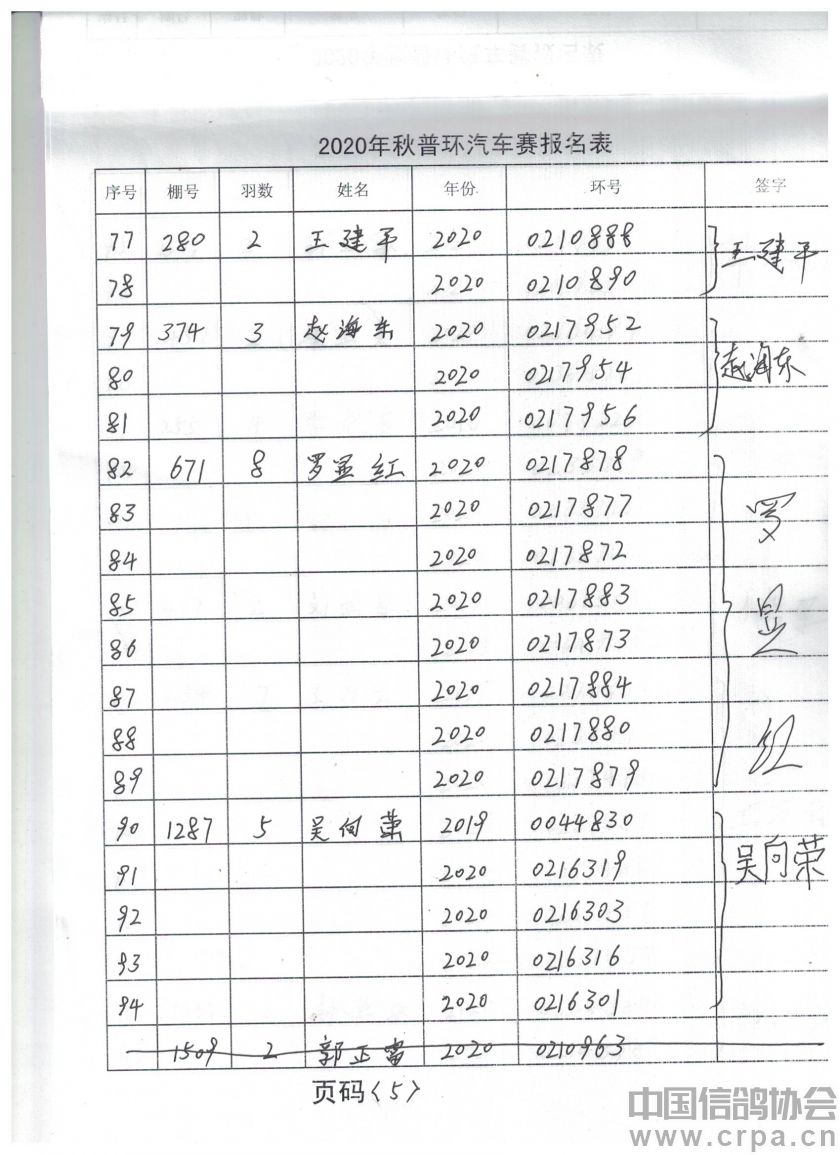 2020年秋普环汽车赛报名表
序号 棚号 羽数 姓名 年份 环号 签字
77 280 2 王建平 2020 0210888 王建平
78 2020 0210890
79 374 3 赵海东 2020 0217952 赵海东
80 2020 0217954
81 2020 0217956
82 671 8 罗显红 2020 0217878 罗显红
83 2020 0217877
84 2020 0217872
85 2020 0217883
86 2020 0217873
87 2020 0217884
88 2020 0217880
89 2020 0217879
90 1287 5 吴向荣 2019 0044830 吴向荣
91 2020 0216319
92 2020 0216303
93 2020 0216316
94 2020 0216301
1509 2 郭正富 2020 0210963
页码〈5〉
中国信鸽协会
www.crpa.cn